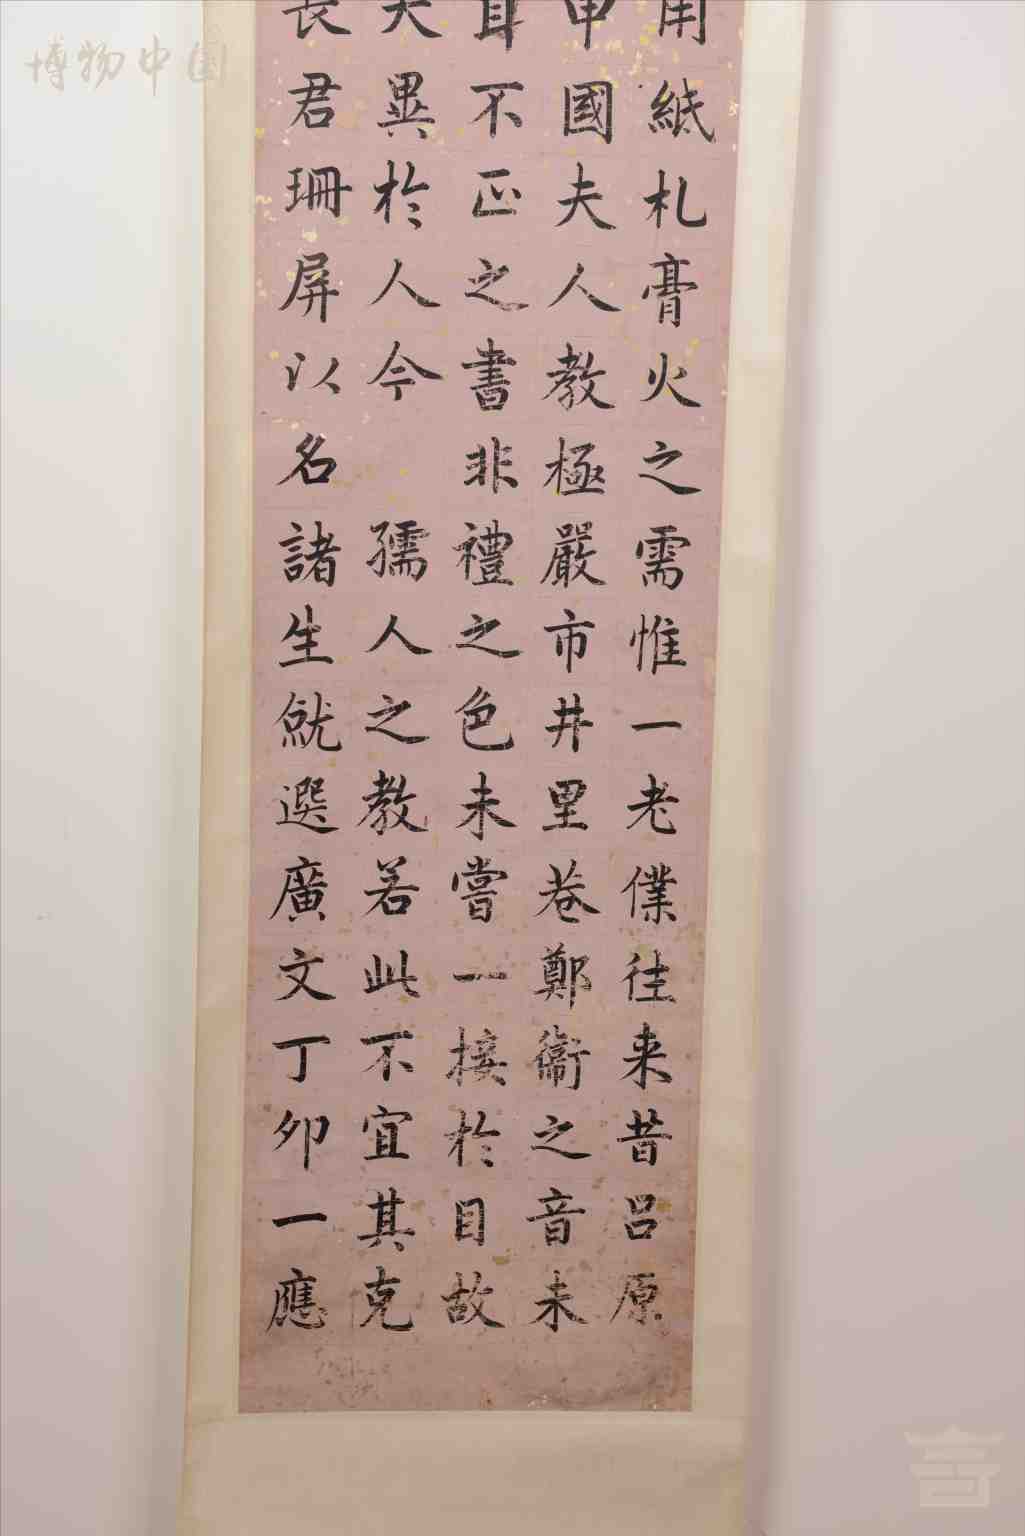 用紙札膏火之需惟一老僕往来昔呂原
申國夫人教極嚴市井里巷鄭衛之音未
耳不正之書非禮之色未嘗一接於目故
大異於人今 孺人之教若此不宜其克
長君珊屏以名諸生就選廣文丁卯一應
博物中国